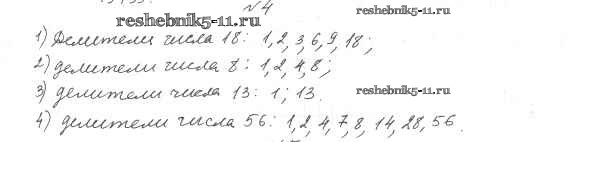 №4
reshebnik5-11.ru
1) Делители числа 18: 1, 2, 3, 6, 9, 18;
2) делители числа 8: 1, 2, 4, 8;
reshebnik5-11.ru
3) делители числа 13: 1; 13.
4) делители числа 56: 1, 2, 4, 7, 8, 14, 28, 56.